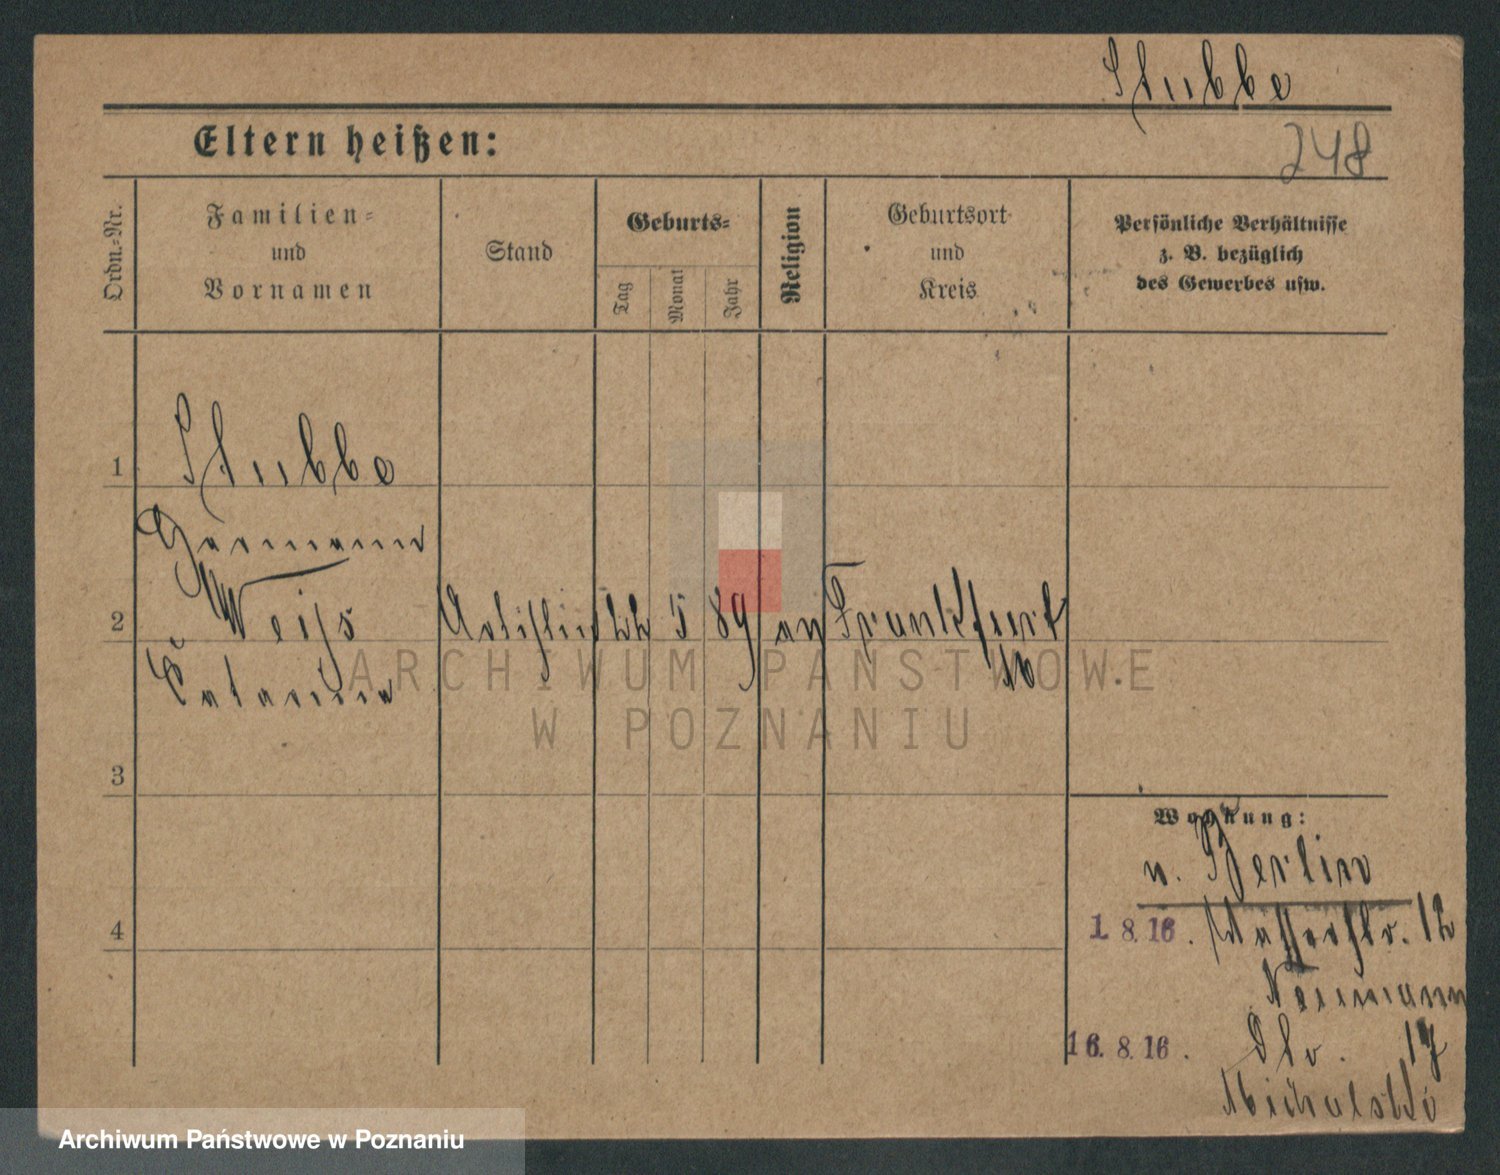 Stubbe
Eltern heißen:
248
Ordn.-Nr.
Familien-
und
Vornamen
Stand
Geburts-
Tag
Monat
Jahr
Religion
Geburtsort
und
Kreis
Persönliche Verhältnisse
z. B. bezüglich
des Gewerbes usw.
1
Stubbe
Hermann
2
Weiss Artistin 22 5 89 ev Frankfurt
Catarina
ARCHIWUM PAŃSTWOWE
W POZNANIU
3
Wohnung:
v. Berlin
4
1. 8. 16. Wasserstr. 12
Neumann
16. 8. 16. 17
Michalski
Archiwum Państwowe w Poznaniu